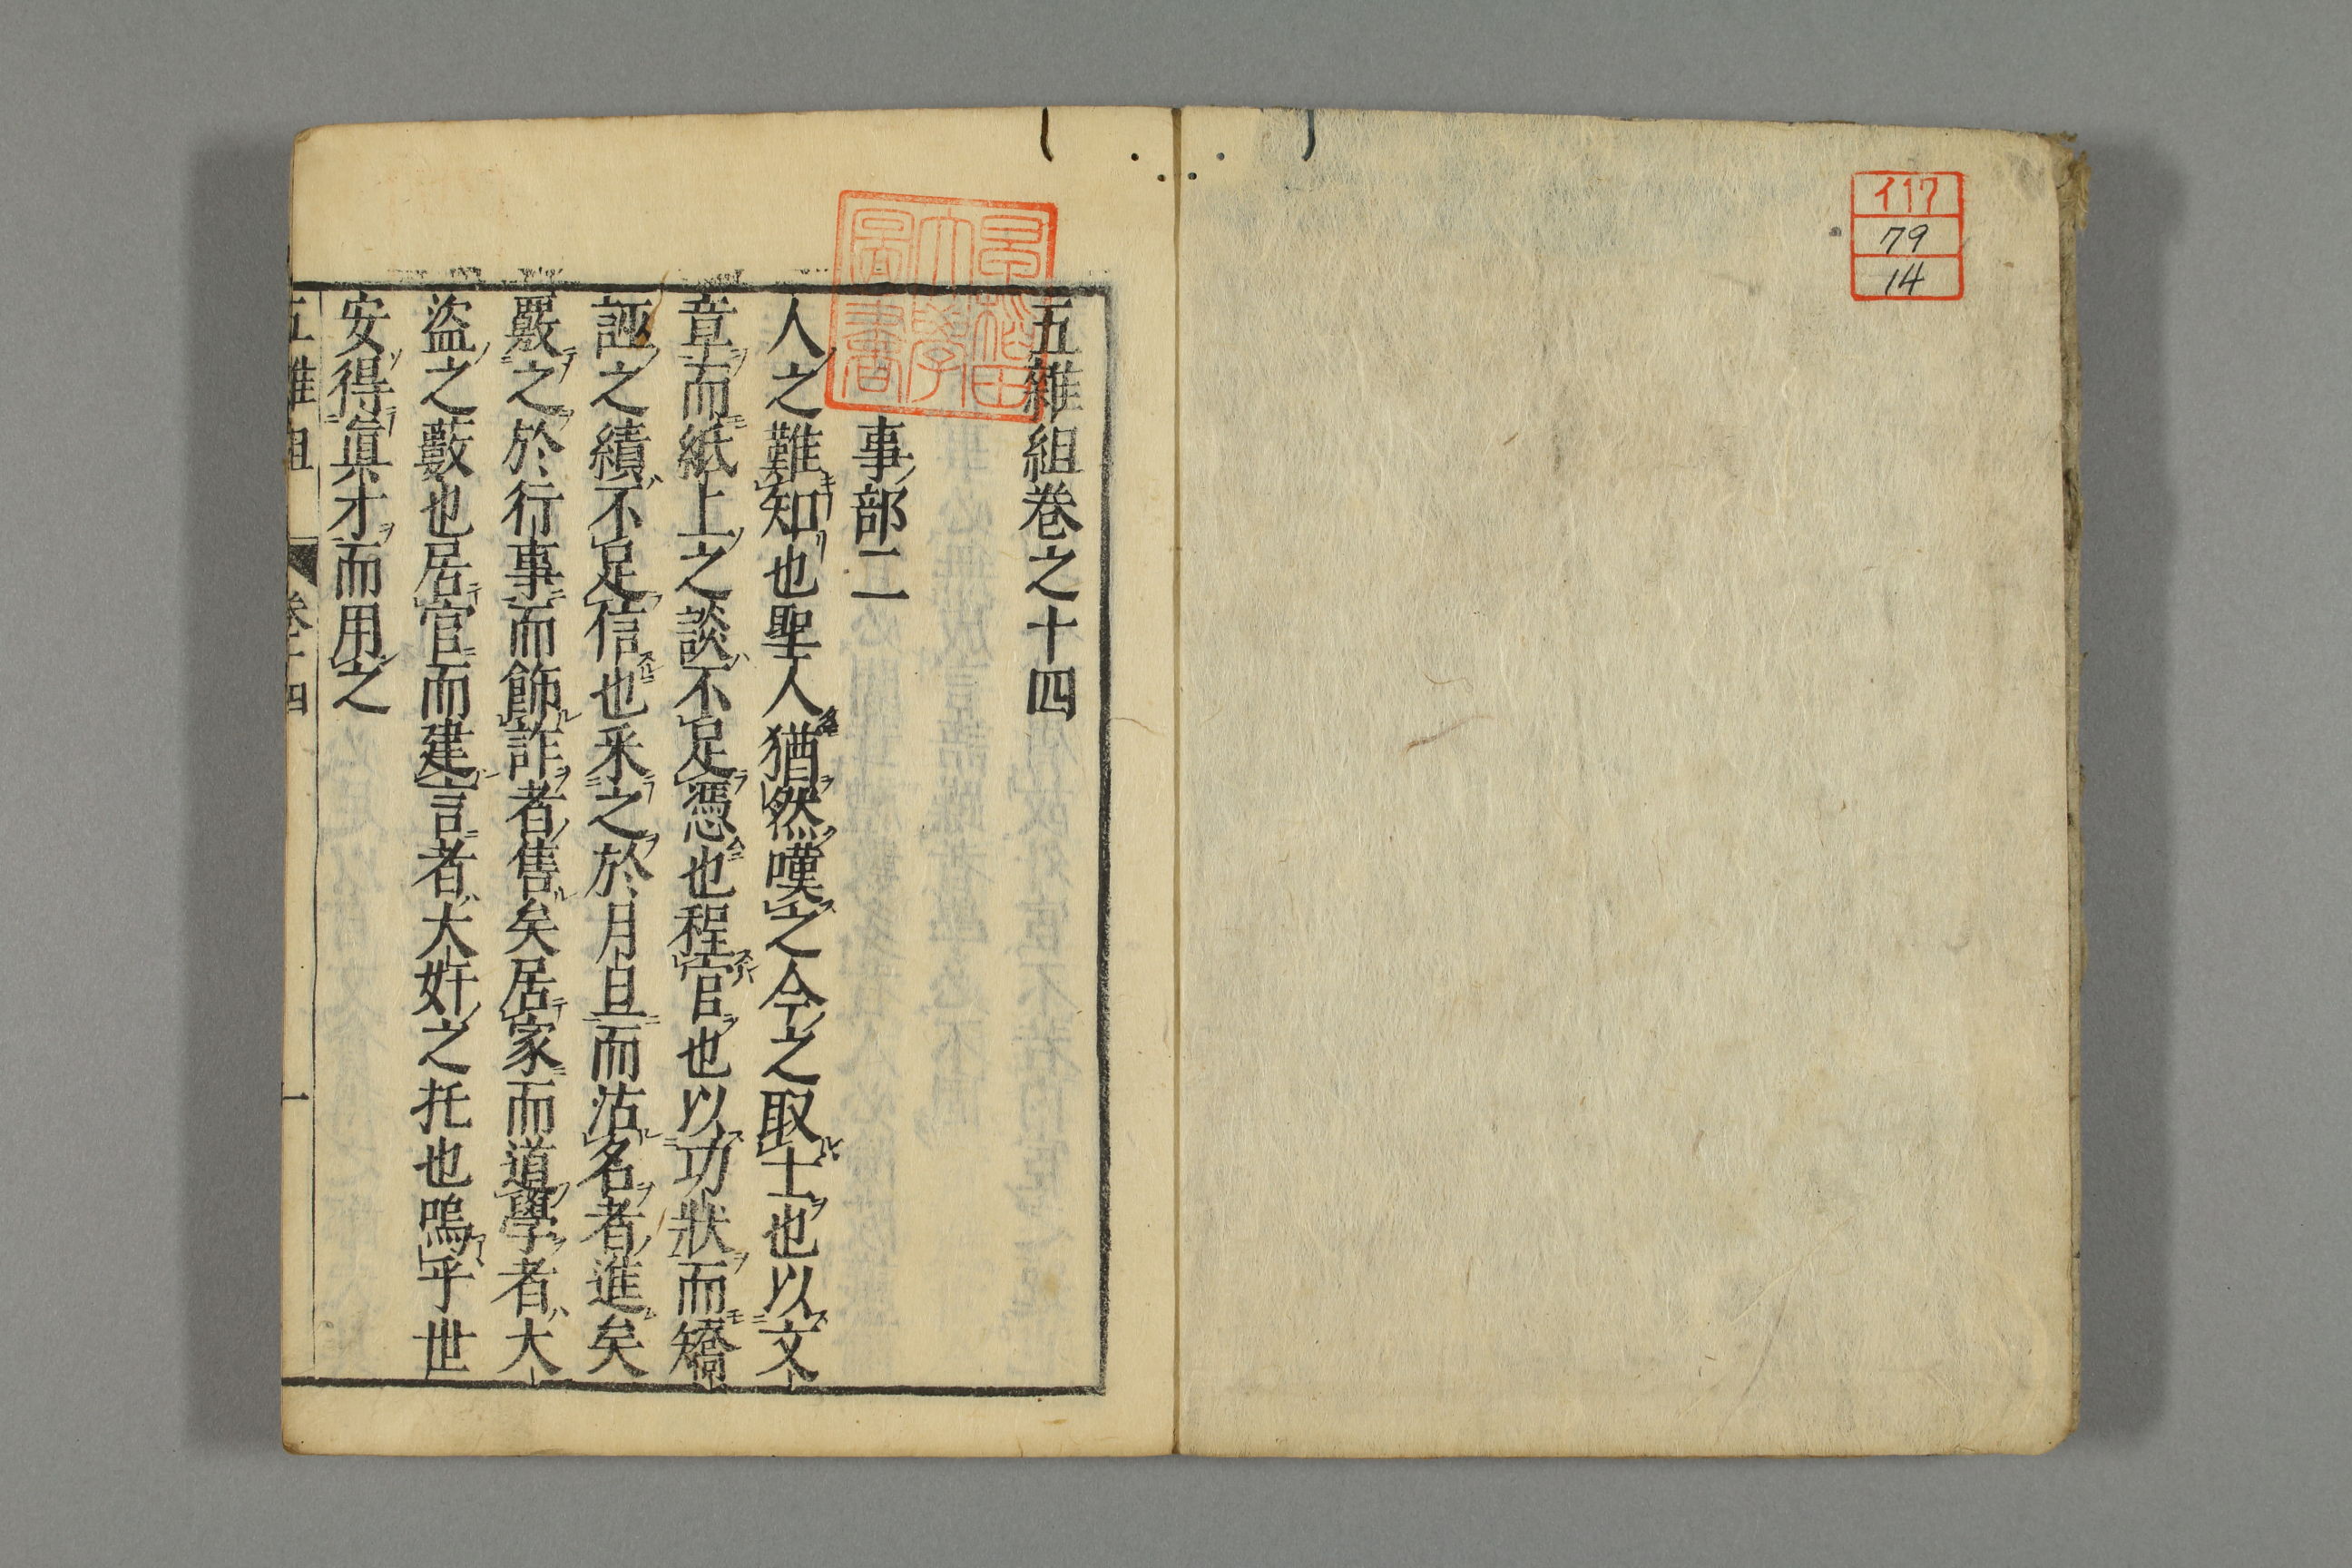 イ17
79
14
早稲田
大學
圖書
五雜組卷之十四
事部二
人之難知也聖人猶然嘆之今之取士也以文
章而紙上之談不足憑也程官也以功狀而矯
誣之績不足信也釆之於月旦而沽名者進矣
覈之於行事而飾詐者售矣居家而道學者大
盜之藪也居官而建言者大奸之托也嗚乎世
安得眞才而用之
五雜組
卷十四
一